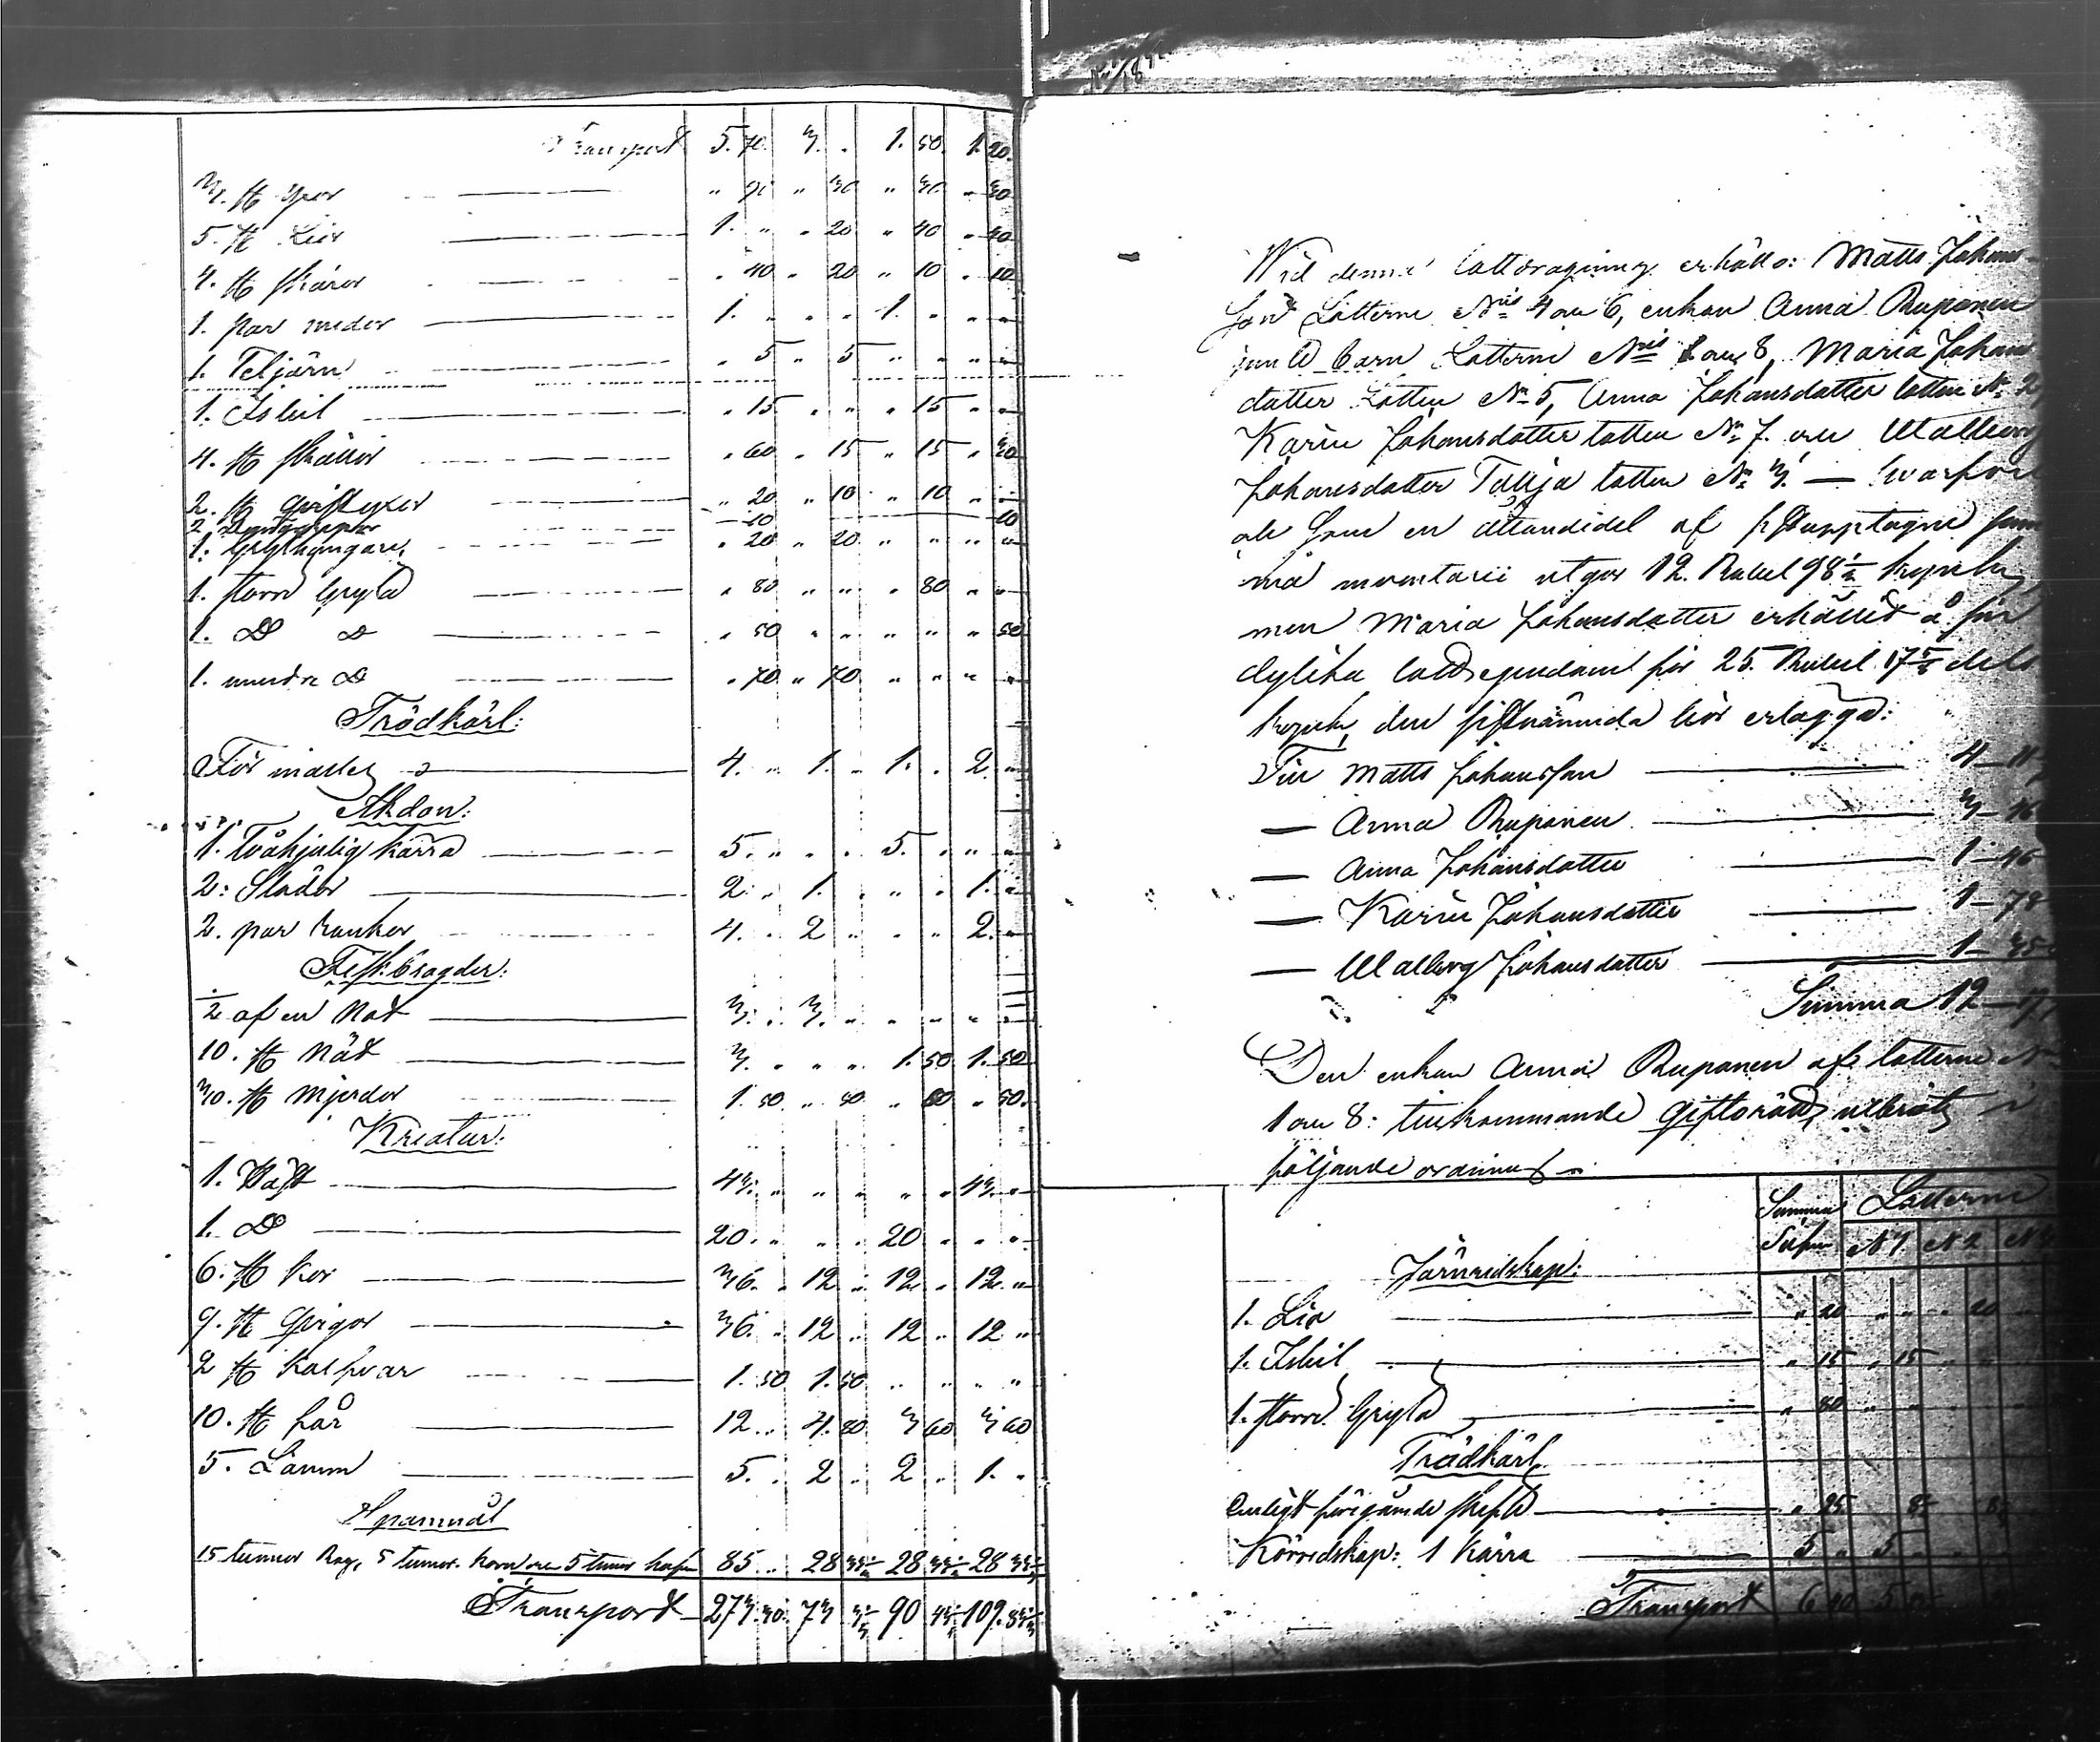 Transport 5. 70. 3. . 1. 50. 1. 20.
3. st yxor " 90 " 30 " 30 " 30
5. st Liar 1. " " 20 " 40 " 40
4. st skäror " 40 " 20 " 10 " 10
1. par medar 1. " " " 1. " " "
1. Teljärn " 5 " 5 " " " "
1. Isbil " 15 " " " 15 " "
4. st skällor " 60 " 15 " 15 " 30
2. st " 20 " 10 " 10 " "
2. 10 10
1. Grythängare " 20 " 20 " " " "
1. storre Gryta " 80 " " " 80 " "
1. D:o D:o " 50 " " " " " 50
1. mindre D:o " 70 " 70 " " " "
Trädkärl:
För 4. " 1. " 1. " 2. "
Åkdon:
1. Tvåhjulig kärra 5. " " " 5. " " "
2. Slädor 2. " 1. " " " 1. "
2. par 4. " 2 " " " 2. "
Fiskbragder:
½ af en Not 3. " 3. " " " " "
10. st Nät 3. " " " 1. 50 1. 50
30. st Mjerdor 1. 50 " 50 " 50 " 50.
Kreatur:
1. Häst 43. " " " " " 43. "
1. D:o 20. " " " 20 " " "
6. st Kor 36. " 12 " 12 " 12 "
9. st Qvigor 36. " 12 " 12 " 12 "
2 st Kalfvar 1. 50 1. 50 " " " "
10. st får 12 " 4. 80 3 60 3 60
5. Lamm 5. " 2 " 2 " 1. "
Spannmål
15 tunnor Råg, 5 tunnor Korn och 5 tunnor hafra 85 " 28 33⅓ 28 33⅓ 28 33⅓
Transport 273. 30. 73 90 109.
Wid denna lottdragning erhöllo: Matts Johans-
son Lotterne N:ris 4 och 6, enkan Anna Ruponen
jemte barn Lotterne N:ris 1 och 8, Maria Johans
dotter Lotten N:o 5, Anna Johansdotter lotten N:o 2,
Karin Johansdotter lotten N:o 7. och Walborg
Johansdotter lotten N:o 3. — hvarföre
och som en åttondedel af
ma inventarii utgör 12. Rubel 98½ kopek
men Maria Johansdotter erhållit å sin
dylika lott egendoml för 25. Rubel
kopek, den sistnämnda bör erlägga:
Till Matts Johansson 4 — 11
— Anna Ruponen 3 —
— Anna Johansdotter 1 — 46
— Karin Johansdotter 1 — 78
— Walborg Johansdotter 1 —
Summa 12 — 17
Den enkan Anna Ruponen af lotterne N:ris
1 och 8: tillkommande giftorätt, utbröts i
följande ordning:
Summa Lotterne
Silfver N 1. N 2 N 3
Järnredskap:
1. Lia " 20 " " " 20
1. Isbil " 15 " 15 "
1. storre Gryta " 80 " "
Trädkärl
Enligt föregående 25 8
Körredskap: 1 Kärra 5 " 5
Transport 6 40 5